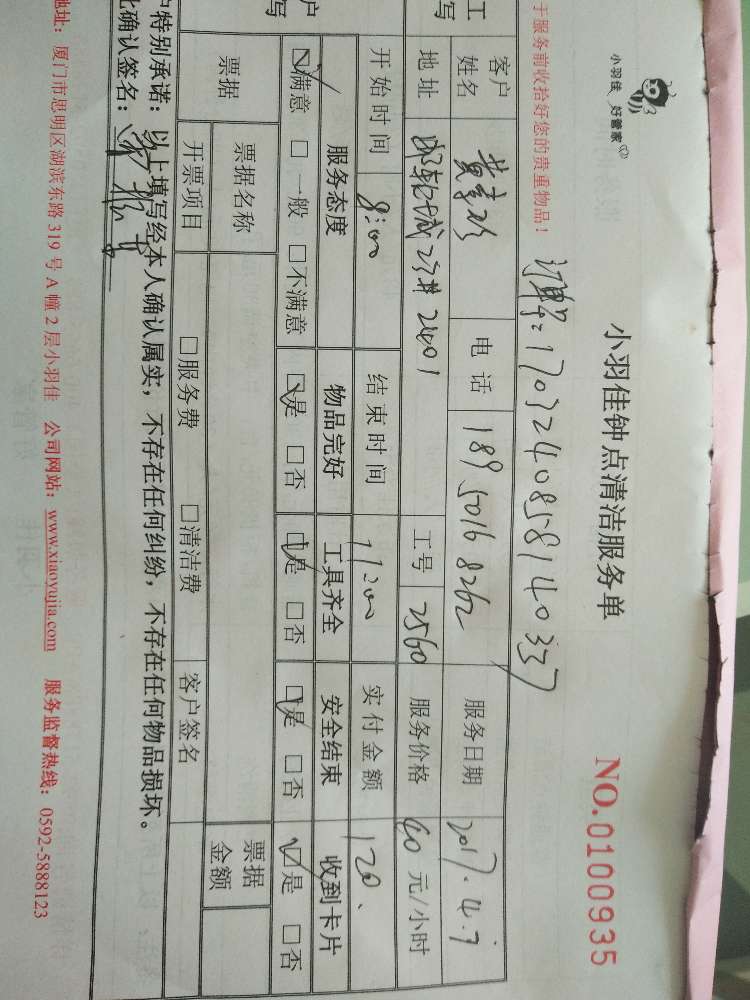 小羽佳 好管家
小羽佳钟点清洁服务单
NO.0100935
于服务前收拾好您的贵重物品!
订单号:1703240858140337
工
写
客户姓名 电话 189 5016 8262 服务日期 2017.4.7
地址 邮轮城 2401 工号 2560 服务价格 40 元/小时
开始时间 8:00 结束时间 11:00 实付金额 120.
户
写
服务态度 物品完好 工具齐全 安全结束 收到卡片
☑满意 □一般 □不满意 ☑是 □否 ☑是 □否 ☑是 □否 ☑是 □否
票据 票据名称 票据金额
开票项目 □服务费 □清洁费 客户签名
户特别承诺:以上填写经本人确认属实,不存在任何纠纷,不存在任何物品损坏。
此确认签名:
地址:厦门市思明区湖滨东路 319 号 A 幢 2 层小羽佳 公司网站:www.xiaoyujia.com 服务监督热线:0592-5888123